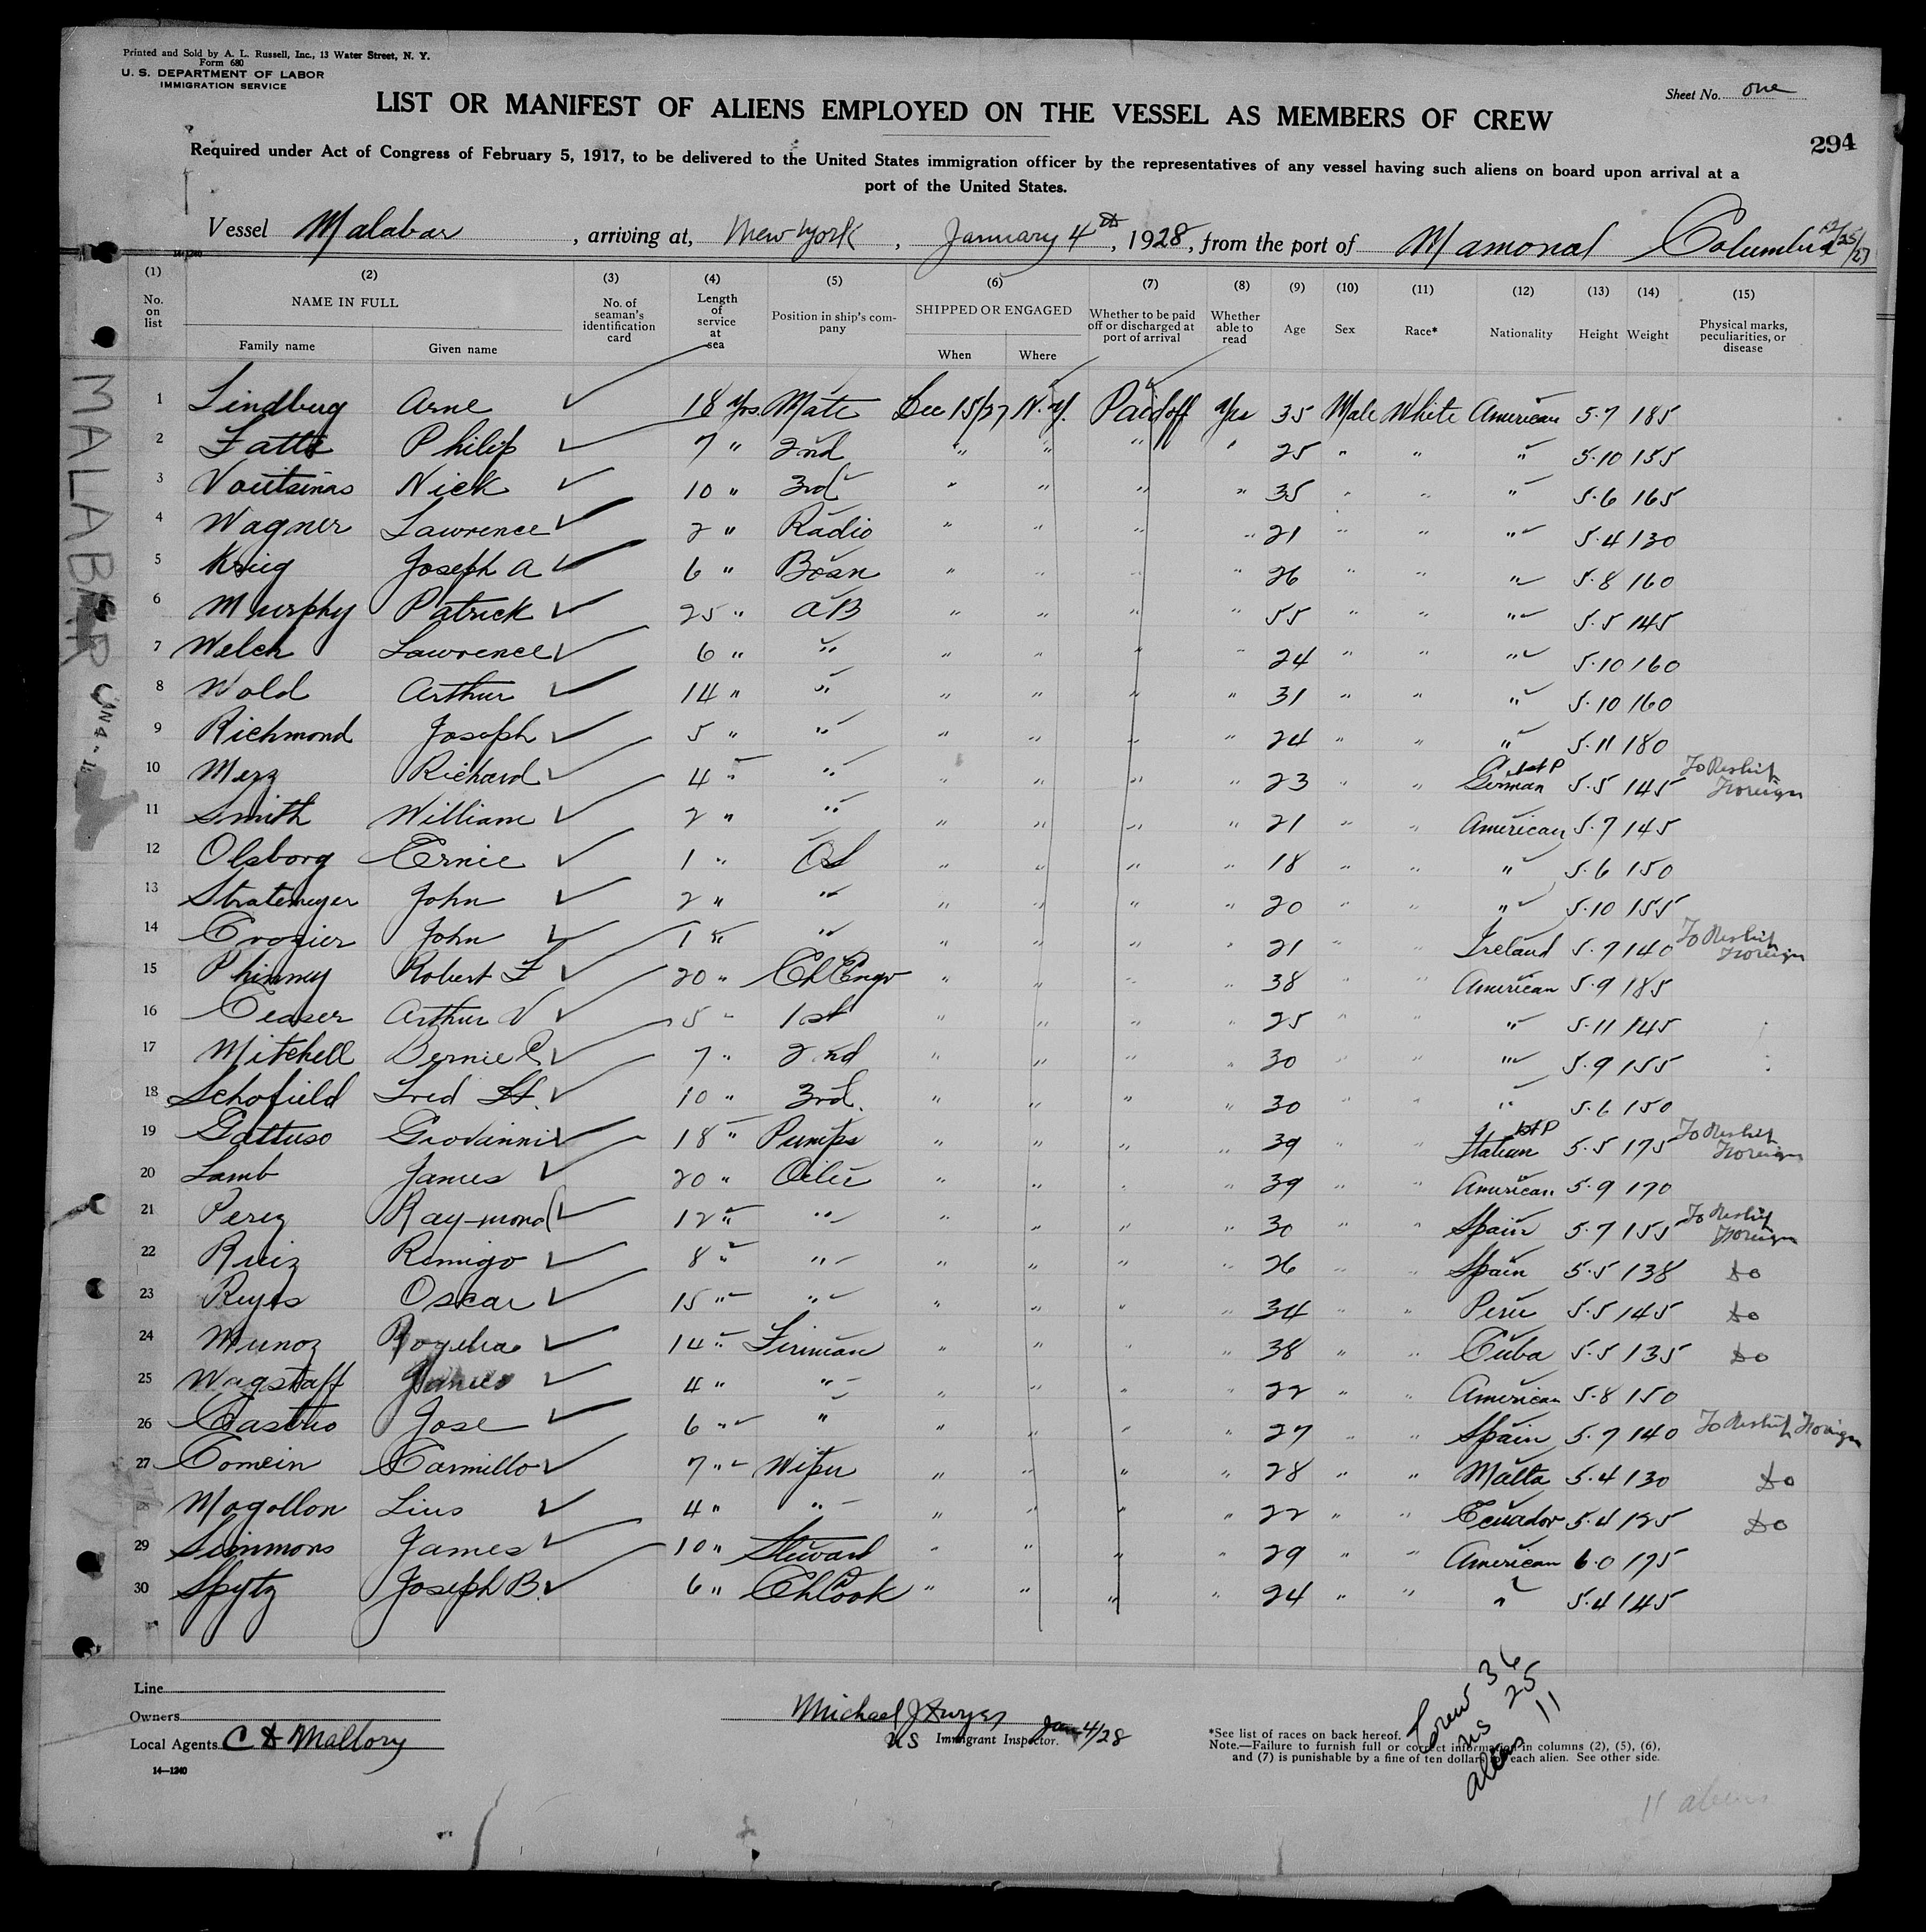 Printed and Sold by A. L. Russell, Inc., 13 Water Street, N. Y.
Form 680
U. S. DEPARTMENT OF LABOR
IMMIGRATION SERVICE
Sheet No. one
LIST OR MANIFEST OF ALIENS EMPLOYED ON THE VESSEL AS MEMBERS OF CREW
294
Required under Act of Congress of February 5, 1917, to be delivered to the United States immigration officer by the representatives of any vessel having such aliens on board upon arrival at a
port of the United States.
Vessel Malabar, arriving at, New York, January 4th, 1928, from the port of Mamonal Columbia 12/25/27
14-1240
(1) (2) (3) (4) (5) (6) (7) (8) (9) (10) (11) (12) (13) (14) (15)
No. on list NAME IN FULL Family name Given name No. of seaman's identification card Length of service at sea Position in ship's company SHIPPED OR ENGAGED When Where Whether to be paid off or discharged at port of arrival Whether able to read Age Sex Race* Nationality Height Weight Physical marks, peculiarities, or disease
1 Lindberg Arne 18 yrs. Mate Dec 15/27 N.Y. Paid off Yes 35 Male White American 5.7 185
2 Philip 7 " 2nd " " " " 25 " " " 5.10 155
3 Voutsinas Nick 10 " 3rd " " " " 35 " " " 5.6 165
4 Wagner Lawrence 2 " Radio " " " " 21 " " " 5.4 130
5 Krieg Joseph A 6 " Bosn " " " " 26 " " " 5.8 160
6 Murphy Patrick 25 " AB " " " " 55 " " " 5.5 145
7 Welch Lawrence 6 " " " " " " 24 " " " 5.10 160
8 Wold Arthur 14 " " " " " " 31 " " " 5.10 160
9 Richmond Joseph 5 " " " " " " 24 " " " 5.11 180
10 Merz Richard 4 " " " " " " 23 " " German 1st P 5.5 145 To Reship Foreign
11 Smith William 2 " " " " " " 21 " " American 5.7 145
12 Olsborg Ernie 1 " OS " " " " 18 " " " 5.6 150
13 Stratemeyer John 2 " " " " " " 20 " " " 5.10 155
14 Crozier John 1 " " " " " " 21 " " Ireland 5.7 140 To Reship Foreign
15 Phinney Robert F 20 " Ch Engr " " " " 38 " " American 5.9 185
16 Ceaser Arthur V 5 " 1st " " " " 25 " " " 5.11 145
17 Mitchell Bernie C 7 " 2nd " " " " 30 " " " 5.9 155
18 Schofield Fred H. 10 " 3rd. " " " " 30 " " " 5.6 150
19 Gattuso Giovanni 18 " Pumps " " " " 39 " " Italian 1st P 5.5 175 To Reship Foreign
20 Lamb James 20 " Oiler " " " " 39 " " American 5.9 170
21 Perez Raymond 12 " " " " " " 30 " " Spain 5.7 155 To Reship Foreign
22 Ruiz Remigo 8 " " " " " " 26 " " Spain 5.5 138 do
23 Reyes Oscar 15 " " " " " " 34 " " Peru 5.5 145 do
24 Munoz Rogelio 14 " Fireman " " " " 38 " " Cuba 5.5 135 do
25 Wagstaff James 4 " " " " " " 22 " " American 5.8 150
26 Castro Jose 6 " " " " " " 27 " " Spain 5.7 140 To Reship Foreign
27 Carmillo 7 " Wiper " " " " 28 " " Malta 5.4 130 do
28 Mogollon Lius 4 " " " " " " 22 " " Ecuador 5.4 125 do
29 Simmons James 10 " Steward " " " " 29 " " American 6.0 175
30 Spytz Joseph B. 6 " Ch Cook " " " " 24 " " " 5.4 145
MALABAR
JAN 4-
Line
Owners
Local Agents C D Mallory
14—1240
Michael J Dwyer
US Immigrant Inspector. Jan 4/28
*See list of races on back hereof.
Note.—Failure to furnish full or correct information in columns (2), (5), (6),
and (7) is punishable by a fine of ten dollars for each alien. See other side.
Crew 36
US 25
aliens 11
11 aliens